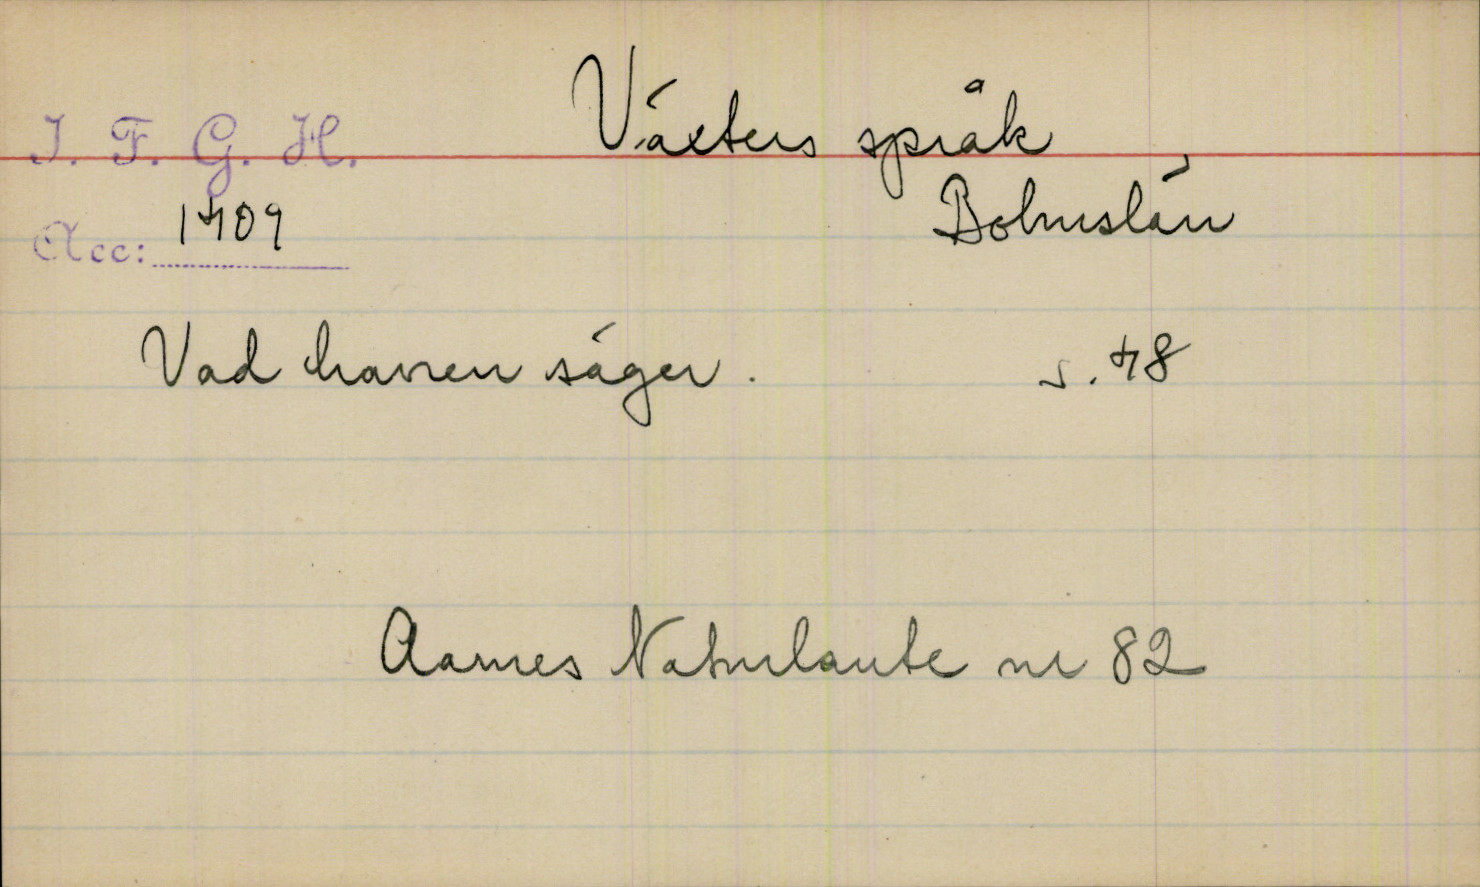 Växters språk
I. F. G. H.
Bohuslän
Acc: 1409
Vad havren säger. s. 48
Aarnes Naturlaute nr 82